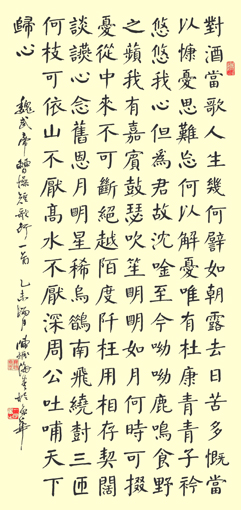 對酒當歌人生幾何譬如朝露去日苦多慨當
以慷憂思難忘何以解憂唯有杜康青青子衿
悠悠我心但為君故沈唫至今呦呦鹿鳴食野
之蘋我有嘉賓鼓瑟吹笙明明如月何時可掇
憂從中來不可斷絕越陌度阡枉用相存契闊
談讌心念舊恩月明星稀烏鵲南飛繞對三匝
何枝可依山不厭高水不厭深周公吐哺天下
歸心
魏武帝曹操短歌行一首 乙未